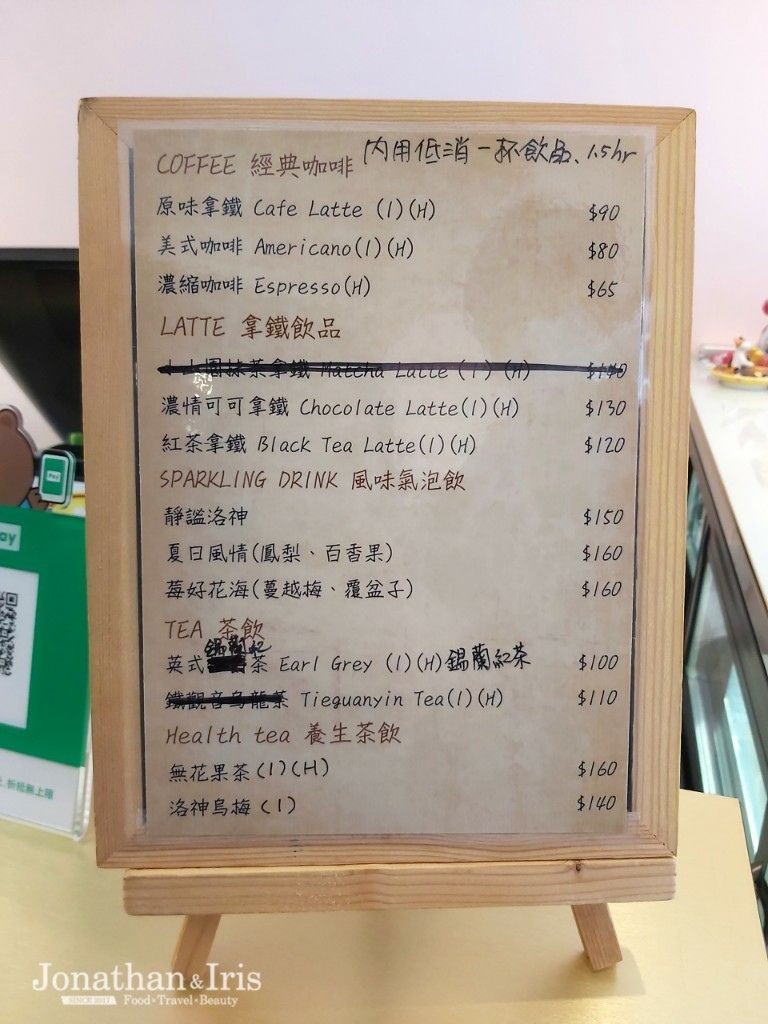 COFFEE 經典咖啡 內用低消一杯飲品、1.5hr
原味拿鐵 Cafe Latte (I)(H) $90
美式咖啡 Americano(I)(H) $80
濃縮咖啡 Espresso(H) $65
LATTE 拿鐵飲品
小山園抹茶拿鐵 Matcha Latte (I)(H) $140
濃情可可拿鐵 Chocolate Latte(I)(H) $130
紅茶拿鐵 Black Tea Latte(I)(H) $120
SPARKLING DRINK 風味氣泡飲
靜謐洛神 $150
夏日風情(鳳梨、百香果) $160
莓好花海(蔓越梅、覆盆子) $160
TEA 茶飲
錫蘭紅
英式茶 Earl Grey (I)(H) 錫蘭紅茶 $100
鐵觀音烏龍茶 Tieguanyin Tea(I)(H) $110
Health tea 養生茶飲
無花果茶(I)(H) $160
洛神烏梅(I) $140
ay
折抵無上限
Jonathan & Iris
SINCE 2017 Food·Travel·Beauty